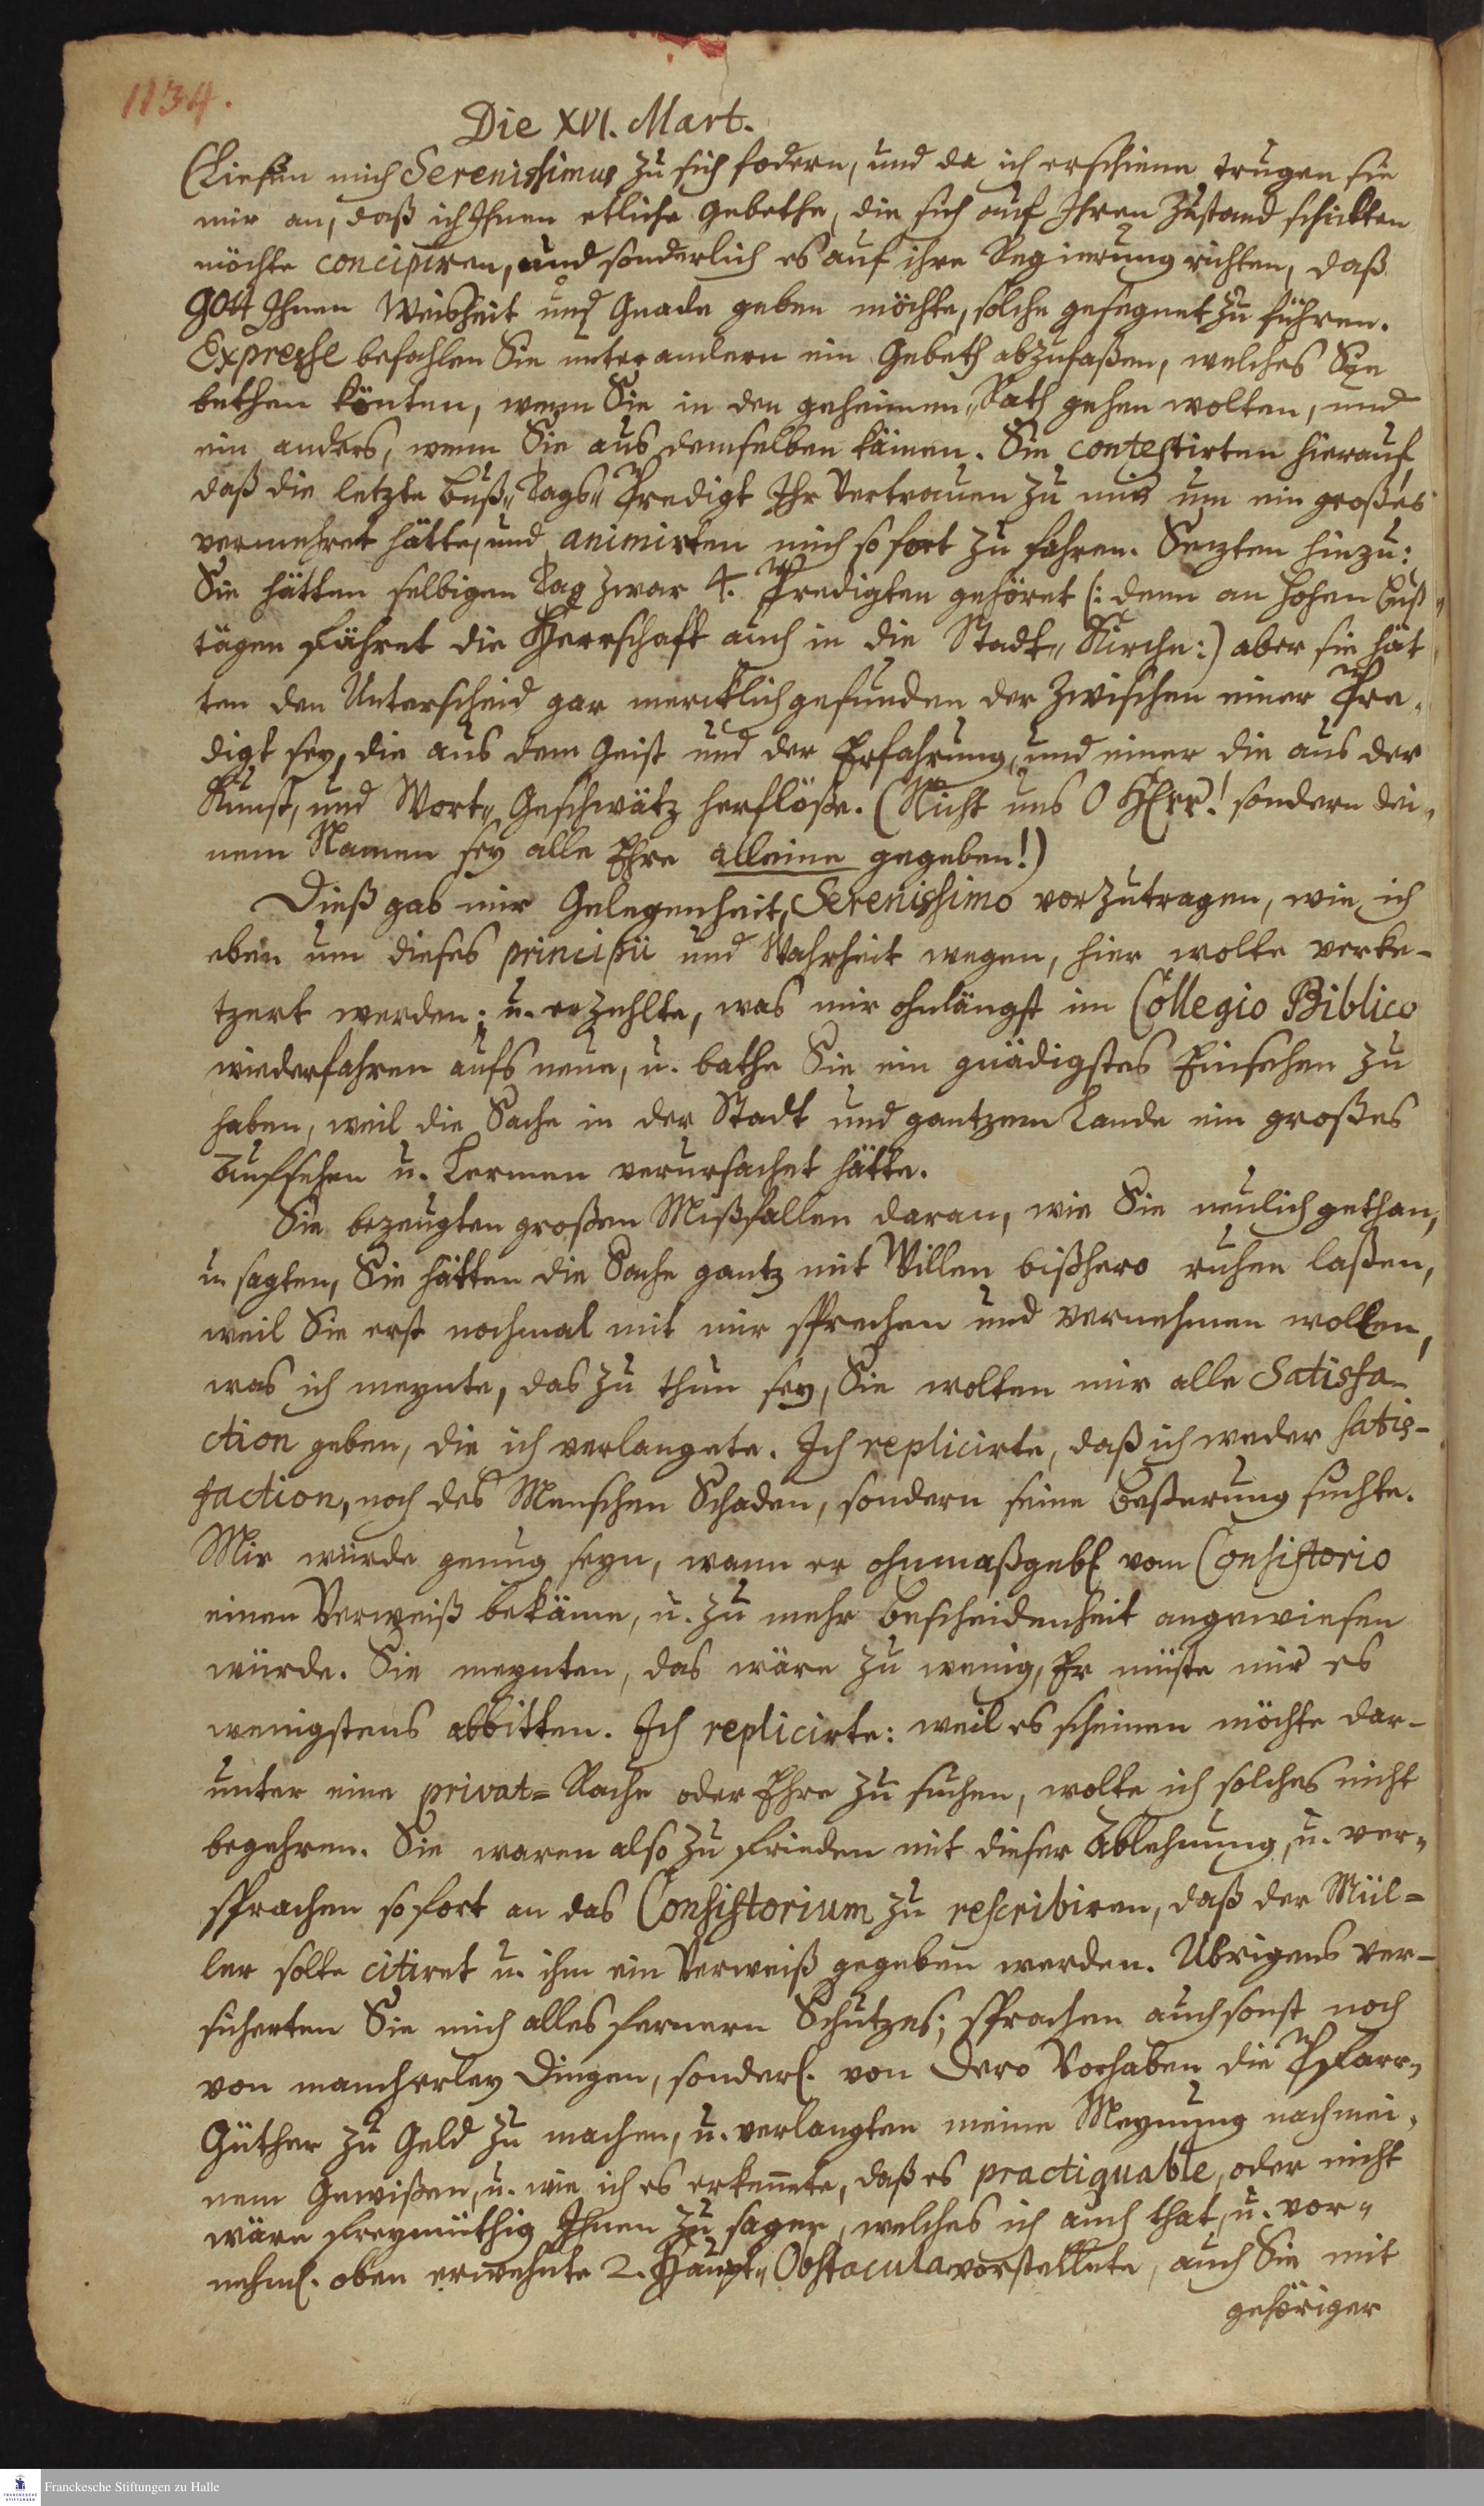 1134.
Die XVI. Mart.
Ließen mich Serenissimus zu sich fodern, und da ich erschiene, trugen sie
mir an, daß ich Ihnen etliche Gebethe, die sich auf Ihren Zustand schickten
möchte concipiren, und sonderlich es auf ihre Regierung richten, daß
Gott Ihnen Weisheit und Gnade geben möchte, solche gesegnet zu führen.
Expresse befohlen Sie unter andern ein Gebeth abzufaßen, welches Sie
bethen könten, wenn Sie in den geheimen„Rath gehen wolten, und
ein anders, wenn Sie aus demselben kämen. Sie contestirten hierauf,
daß die letzte Buß„Tags„Predigt Ihr Vertrauen zu mir um ein großes
vermehret hätte, und animirten mich so fort zu fahren. Sezten hinzu:
Sie hätten selbigen Tag zwar 4. Predigten gehöret (: denn an hohen Buß„
tägen fähret die Herrschaft auch in die Stadt„Kirche:) aber sie hät„
ten den Unterscheid gar mercklich gefunden der zwischen einer Pre„
digt sey, die aus dem Geist und der Erfahrung, und einer die aus der
Kunst, und Wort„Geschwätz herflöße. (Nicht uns O HErr! sondern dei„
nem Namen sey alle Ehre alleine gegeben!)
Dieß gab mir Gelegenheit, Serenissimo vorzutragen, wie ich
eben um dieses principii und Wahrheit wegen, hier wolte verke-
tzert werden; u. erzehlte, was mir ohnlängst im Collegio Biblico
wiederfahren aufs neue, u. bathe Sie ein gnädigstes Einsehen zu
haben, weil die Sache in der Stadt und gantzem Lande ein großes
Aufsehen u. Lermen verursachet hätte.
Sie bezeugten großen Mißfallen daran, wie Sie neulich gethan,
u. sagten, Sie hätten die Sache gantz mit Willen bißhero ruhen laßen,
weil Sie erst nochmal mit mir sprechen und vernehmen wollen,
was ich meynte, das zu thun sey, Sie wolten mir alle Satisfa-
ction geben, die ich verlangete. Ich replicirte, daß ich weder satis-
faction, noch des Menschen Schaden, sondern seine Beßerung suchte.
Mir würde genug seyn, wann er ohnmaßgebl vom Consistorio
einen Verweiß bekäme, u. zu mehr Bescheidenheit angewiesen
würde. Sie meynten, das wäre zu wenig, Er müste mir es
wenigstens abbitten. Ich replicirte: weil es scheinen möchte dar-
unter eine privat=Rache oder Ehre zu suchen, wolte ich solches nicht
begehren. Sie waren also zu frieden mit dieser Ablehnung, u. ver„
sprachen so fort an das Consistorium zu rescribiren, daß der Mül=
ler solte citiret u. ihm ein Verweiß gegeben werden. Ubrigens ver-
sicherten Sie mich alles fernern Schutzes; sprachen auch sonst noch
von mancherley Dingen, sonderl. von Dero Vorhaben die Pfarr„
Güther zu Geld zu machen, u. verlangten meine Meynung nach mei„
nem Gewißen, u. wie ich es erkennete, daß es practiquable, oder nicht
wäre freymüthig Ihnen zu sagen, welches ich auch that, u. vor„
nehml. oben erwehnte 2. Haupt„Obstacula vorstellete, auch Sie mit
gehöriger
Franckesche Stiftungen zu Halle